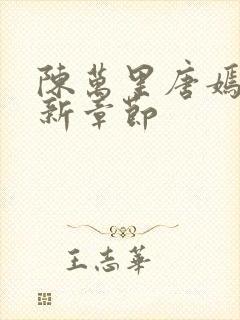 陳萬里唐嫣
新章節
王志華